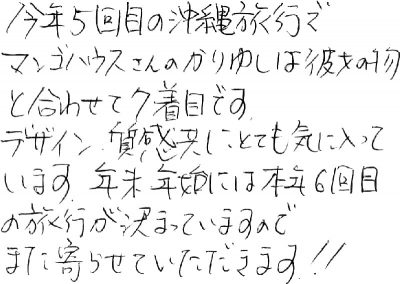 今年5回目の沖縄旅行で
マンゴハウスさんのかりゆしは彼女の物
と合わせて7着目です
デザイン、質感共にとても気に入って
います 年末年始には本年6回目
の旅行が決まっていますので
また寄らせていただきます!!